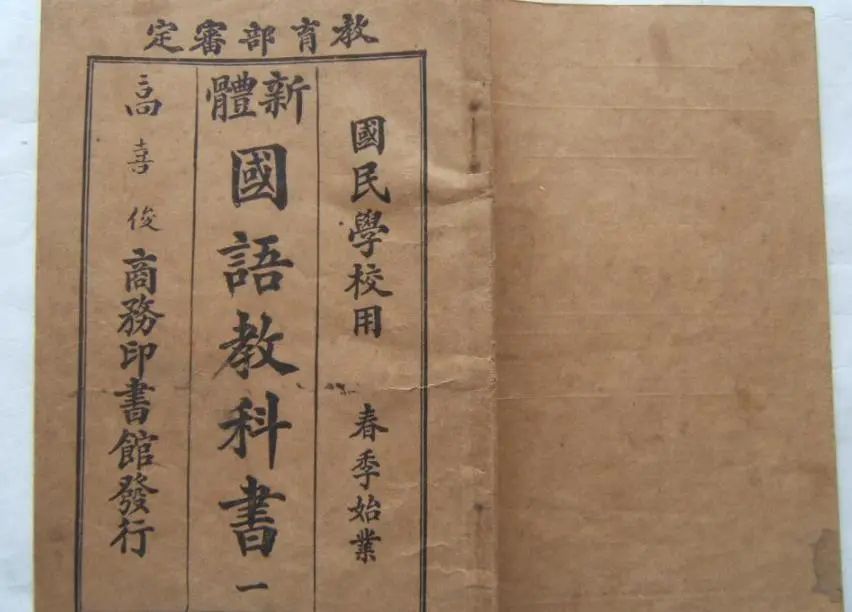 教育部審定
國民學校用 春季始業
新體
國語教科書 一
高喜俊
商務印書館發行